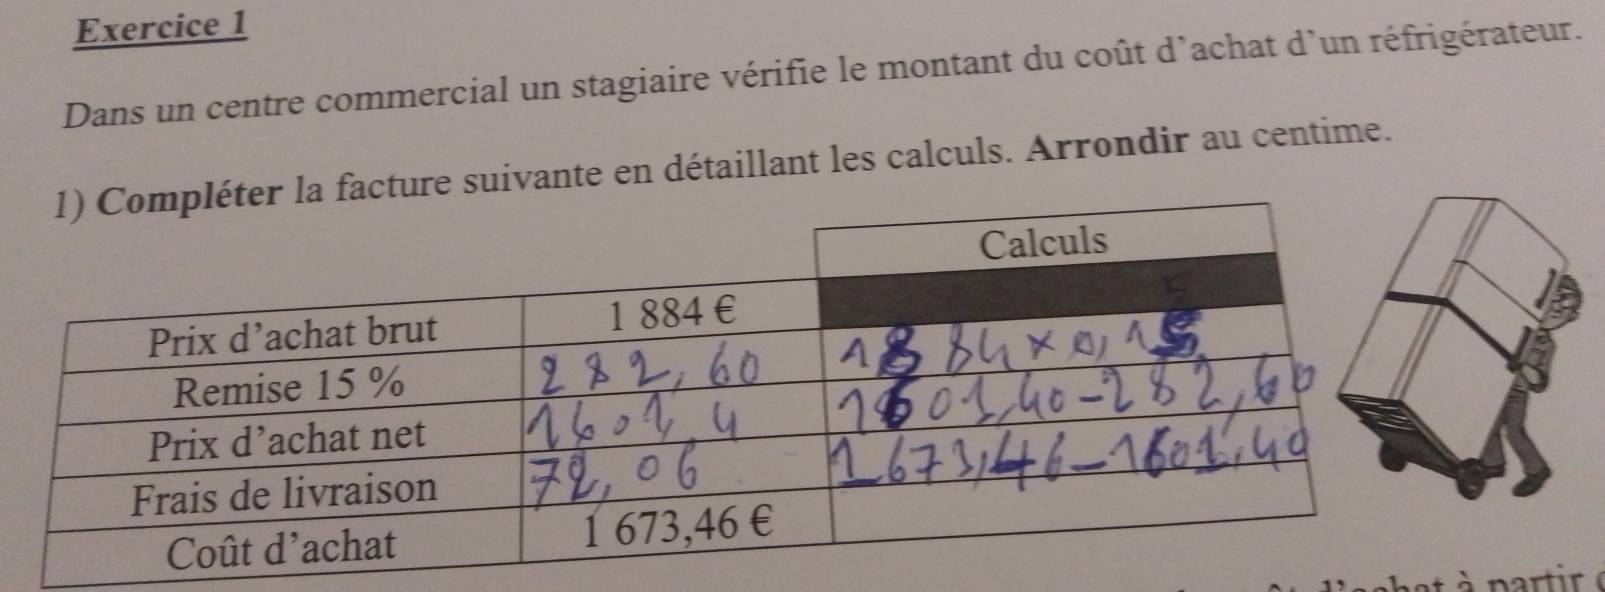 Exercice 1
Dans un centre commercial un stagiaire vérifie le montant du coût d'achat d'un réfrigérateur.
1) Compléter la facture suivante en détaillant les calculs. Arrondir au centime.
Calculs
Prix d'achat brut 1 884 €
Remise 15 % 282,60 1884 x 0,15
Prix d'achat net 1601,4 1601,40-282,60
Frais de livraison 72,06 1673,46-1601,40
Coût d'achat 1 673,46 €
à partir